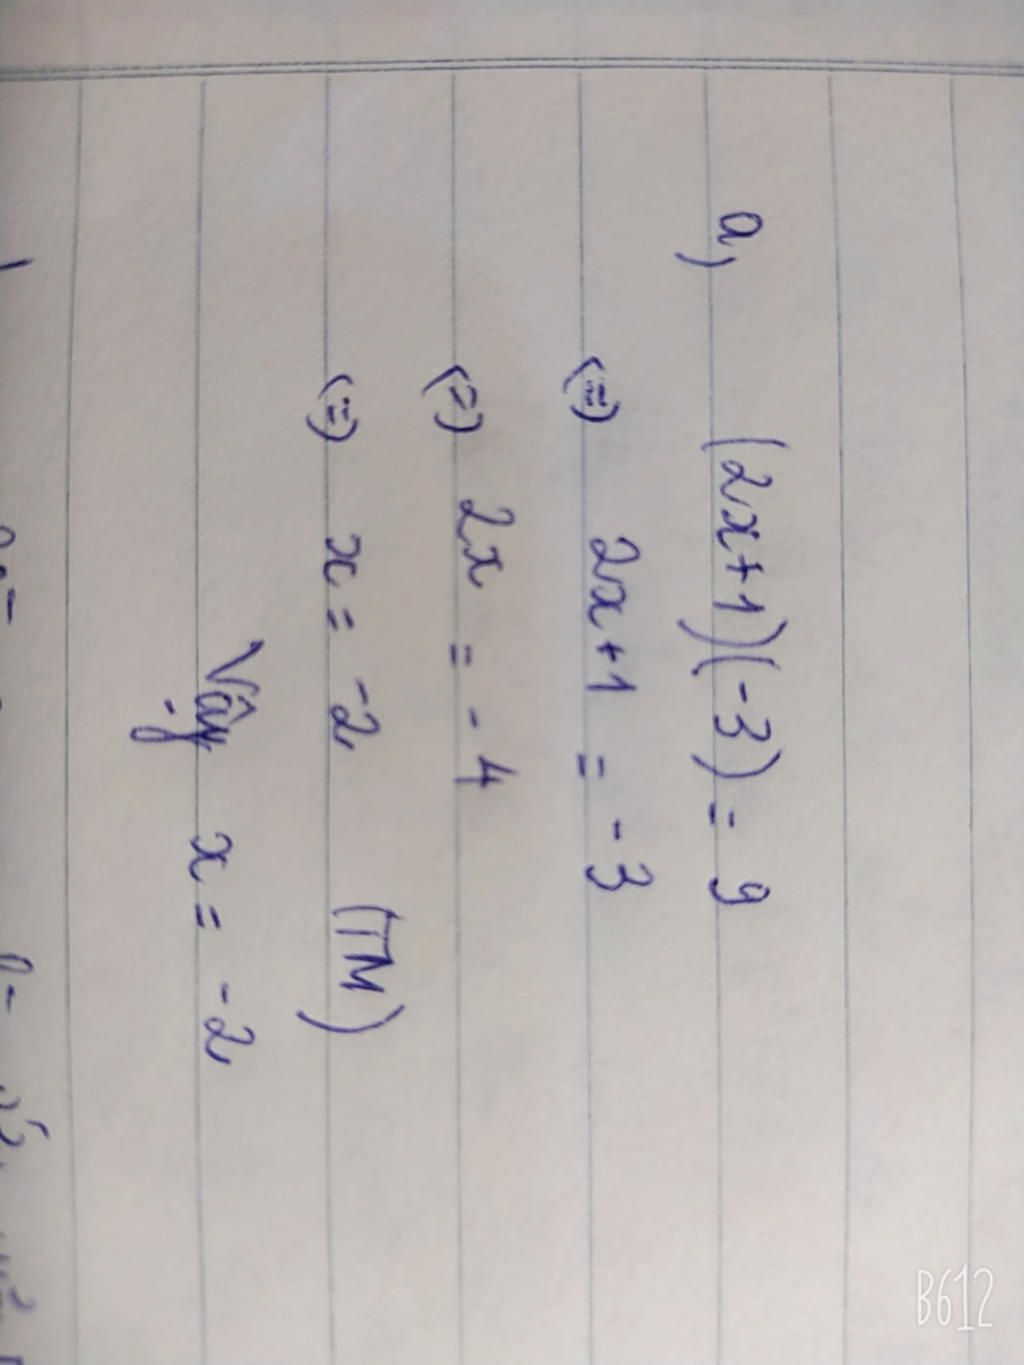 a) (2x+1)(-3) = 9
(=) 2x+1 = -3
(=) 2x = -4
(=) x = -2 (TM)
Vậy x = -2
B612